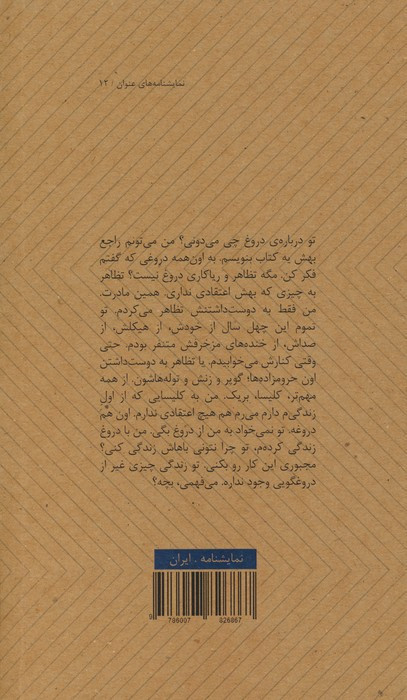 نمایشنامه‌های عنوان / ۱۲
تو درباره‌ی دروغ چی می‌دونی؟ من می‌تونم راجع
بهش یه کتاب بنویسم. به اون‌همه دروغی که گفتم
فکر کن. مگه تظاهر و ریاکاری دروغ نیست؟ تظاهر
به چیزی که بهش اعتقادی نداری. همین مادرت.
من فقط به دوست‌داشتنش تظاهر می‌کردم. تو
تموم این چهل سال از خودش، از هیکلش، از
صداش، از خنده‌های مزخرفش متنفر بودم. حتی
وقتی کنارش می‌خوابیدم. یا تظاهر به دوست‌داشتن
اون حروم‌زاده‌ها؛ گوپر و زنش و توله‌هاشون. از همه
مهم‌تر، کلیسا، بریک. من به کلیسایی که از اولِ
زندگی‌م دارم می‌رم هم هیچ اعتقادی ندارم. اون هم
دروغه. تو نمی‌خواد به من از دروغ بگی. من با دروغ
زندگی کرده‌م، تو چرا نتونی باهاش زندگی کنی؟
مجبوری این کار رو بکنی. تو زندگی چیزی غیر از
دروغگویی وجود نداره. می‌فهمی، بچه؟
نمایشنامه . ایران
9 786007 026067